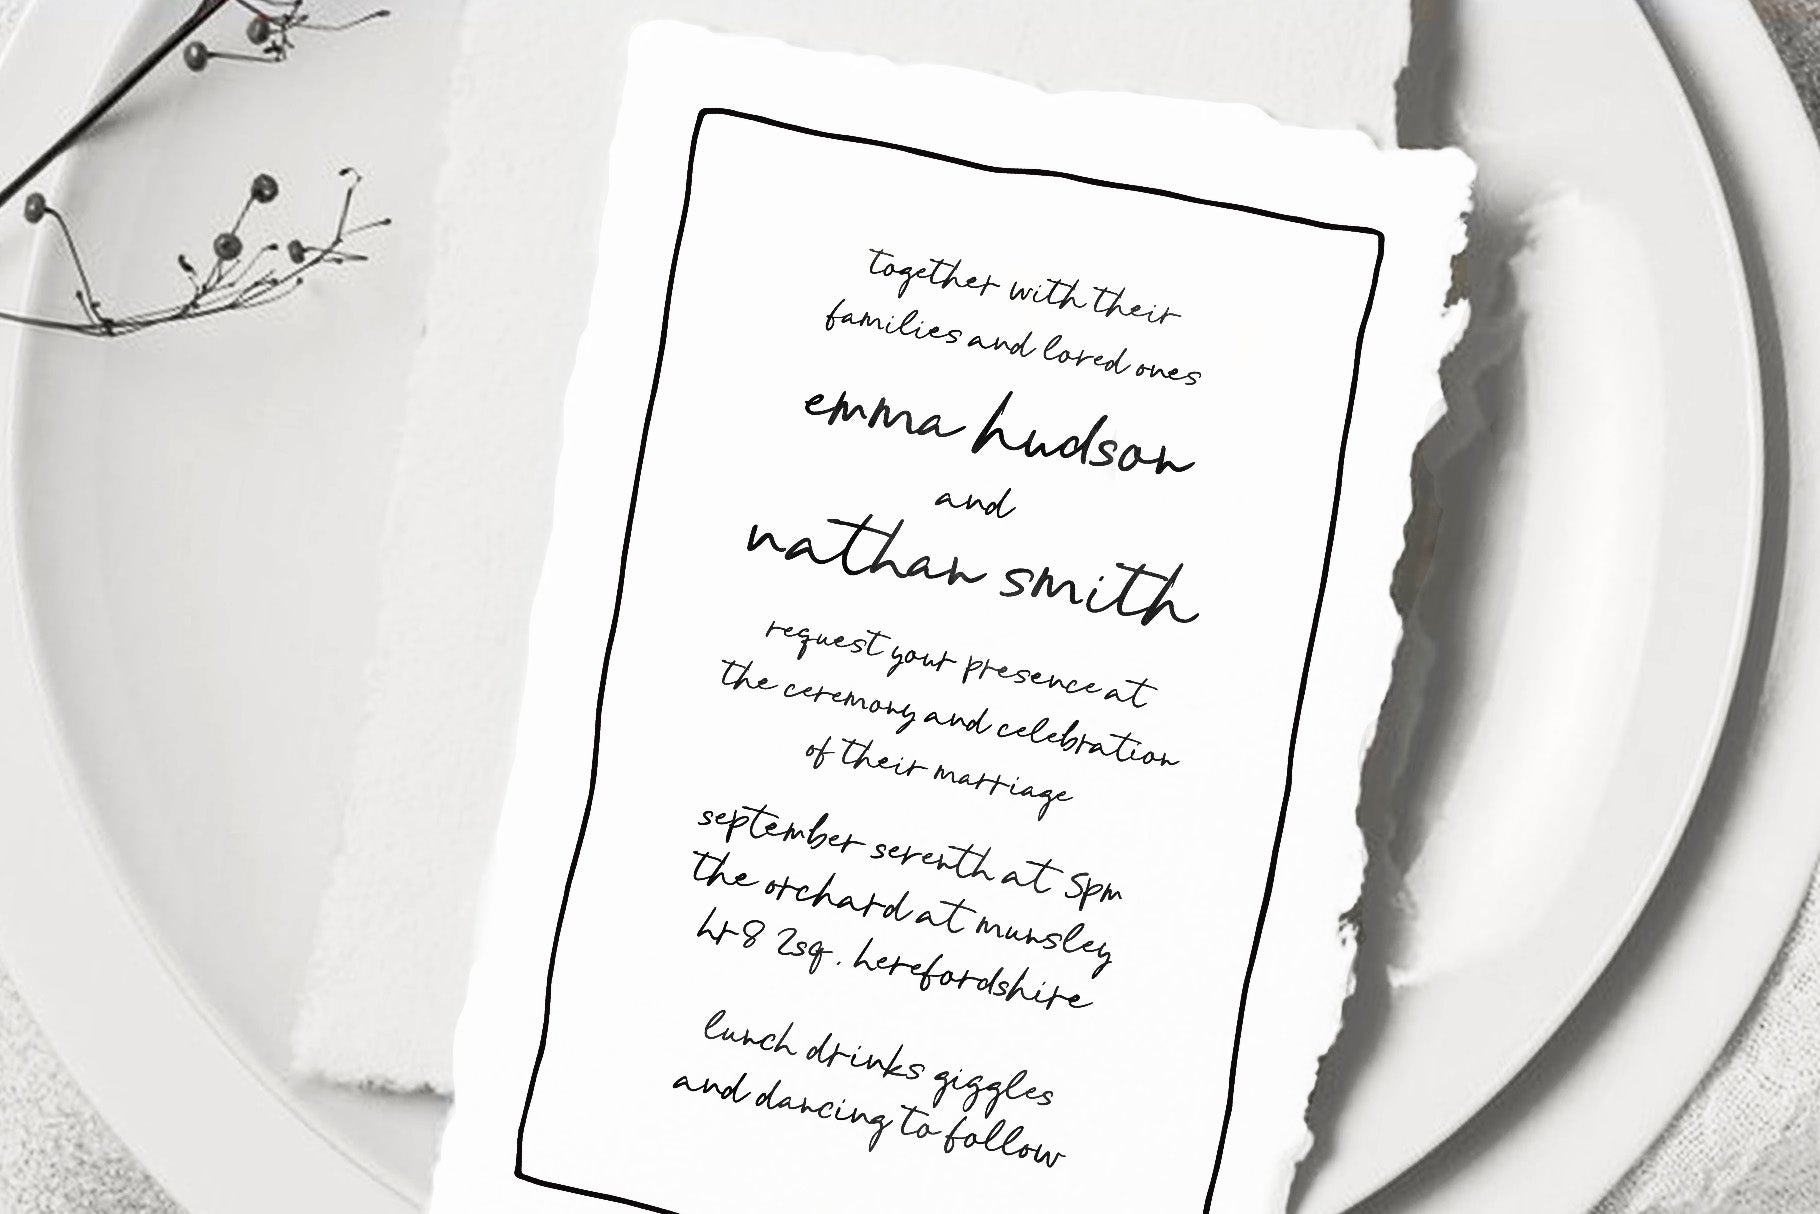 together with their
families and loved ones
emma hudson
and
nathan smith
request your presence at
the ceremony and celebration
of their marriage
september seventh at 5pm
the orchard at munsley
hr8 2sq. herefordshire
lunch drinks giggles
and dancing to follow